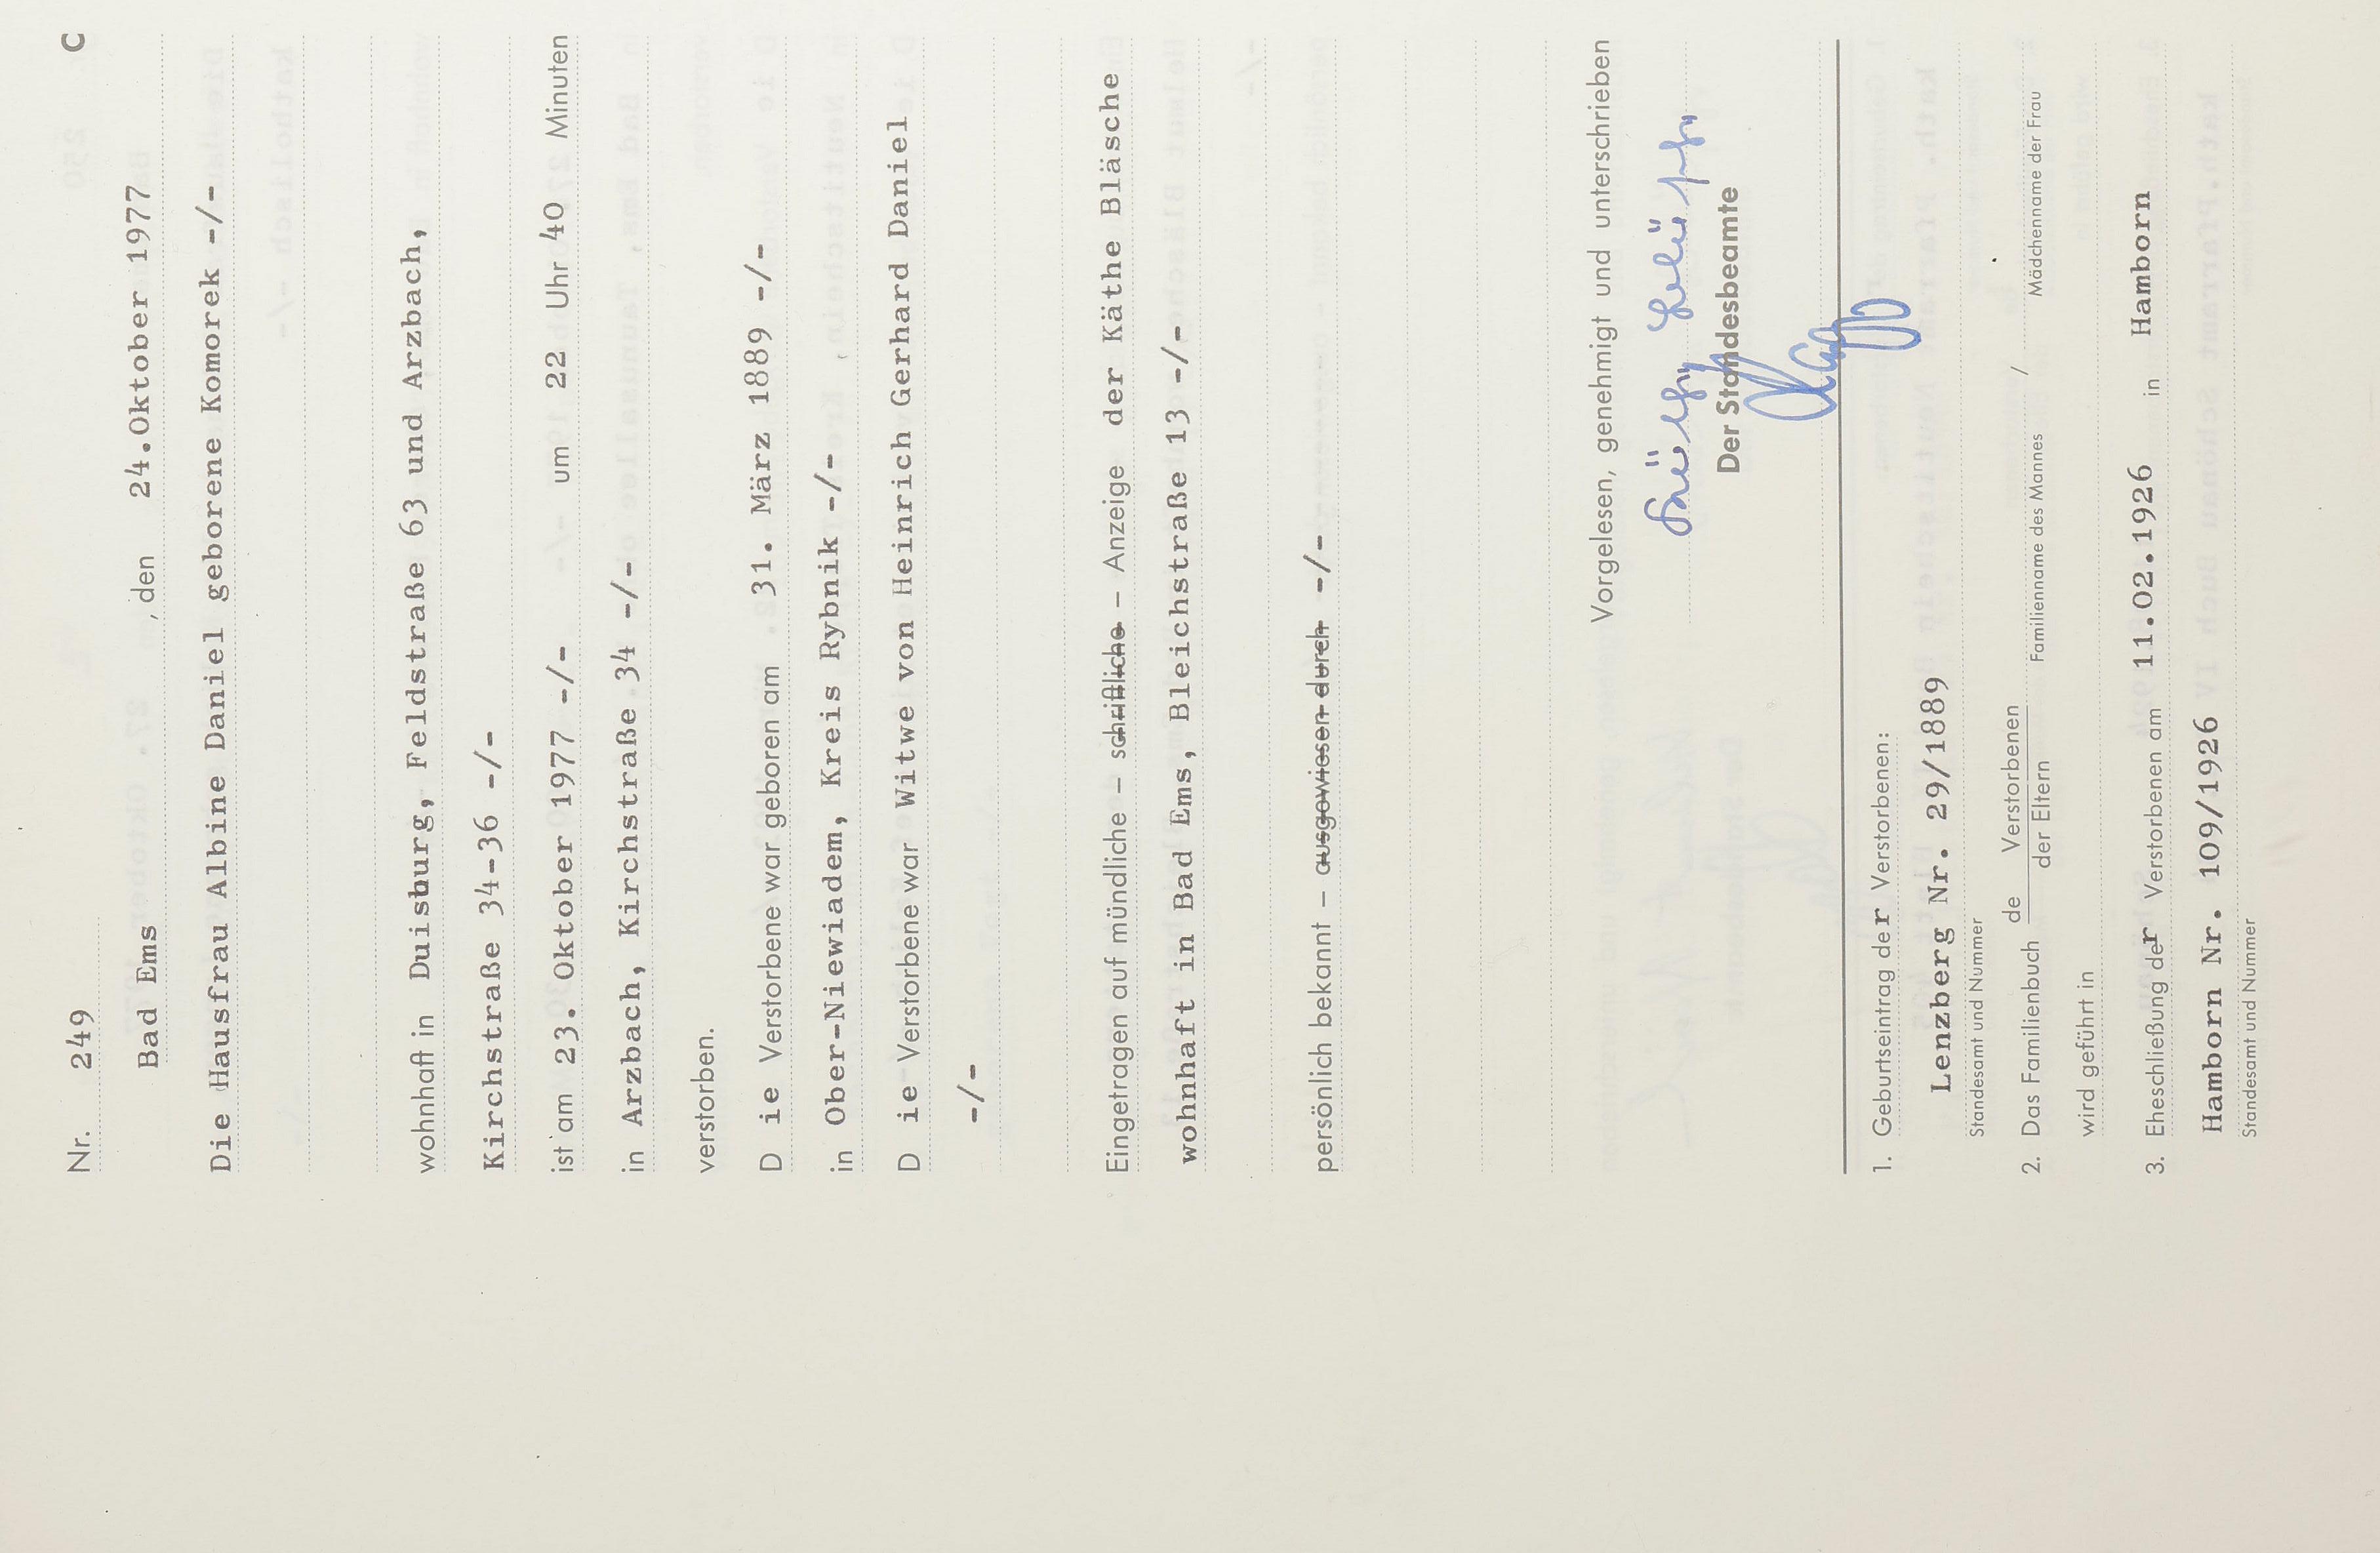 C
Nr. 249
Bad Ems , den 24.Oktober 1977
Die Hausfrau Albine Daniel geborene Komorek -/-
wohnhaft in Duisburg, Feldstraße 63 und Arzbach,
Kirchstraße 34-36 -/-
ist am 23. Oktober 1977 -/- um 22 Uhr 40 Minuten
in Arzbach, Kirchstraße 34 -/-
verstorben.
D ie Verstorbene war geboren am 31. März 1889 -/-
in Ober-Niewiadem, Kreis Rybnik -/-
D ie Verstorbene war Witwe von Heinrich Gerhard Daniel
-/-
Eingetragen auf mündliche – schriftliche – Anzeige der Käthe Bläsche
wohnhaft in Bad Ems, Bleichstraße 13 -/-
persönlich bekannt – ausgewiesen durch -/-
Vorgelesen, genehmigt und unterschrieben
Der Standesbeamte
1. Geburtseintrag der Verstorbenen:
Lenzberg Nr. 29/1889
Standesamt und Nummer
2. Das Familienbuch de Verstorbenen
der Eltern Familienname des Mannes / Mädchenname der Frau
wird geführt in
3. Eheschließung der Verstorbenen am 11.02.1926 in Hamborn
Hamborn Nr. 109/1926
Standesamt und Nummer